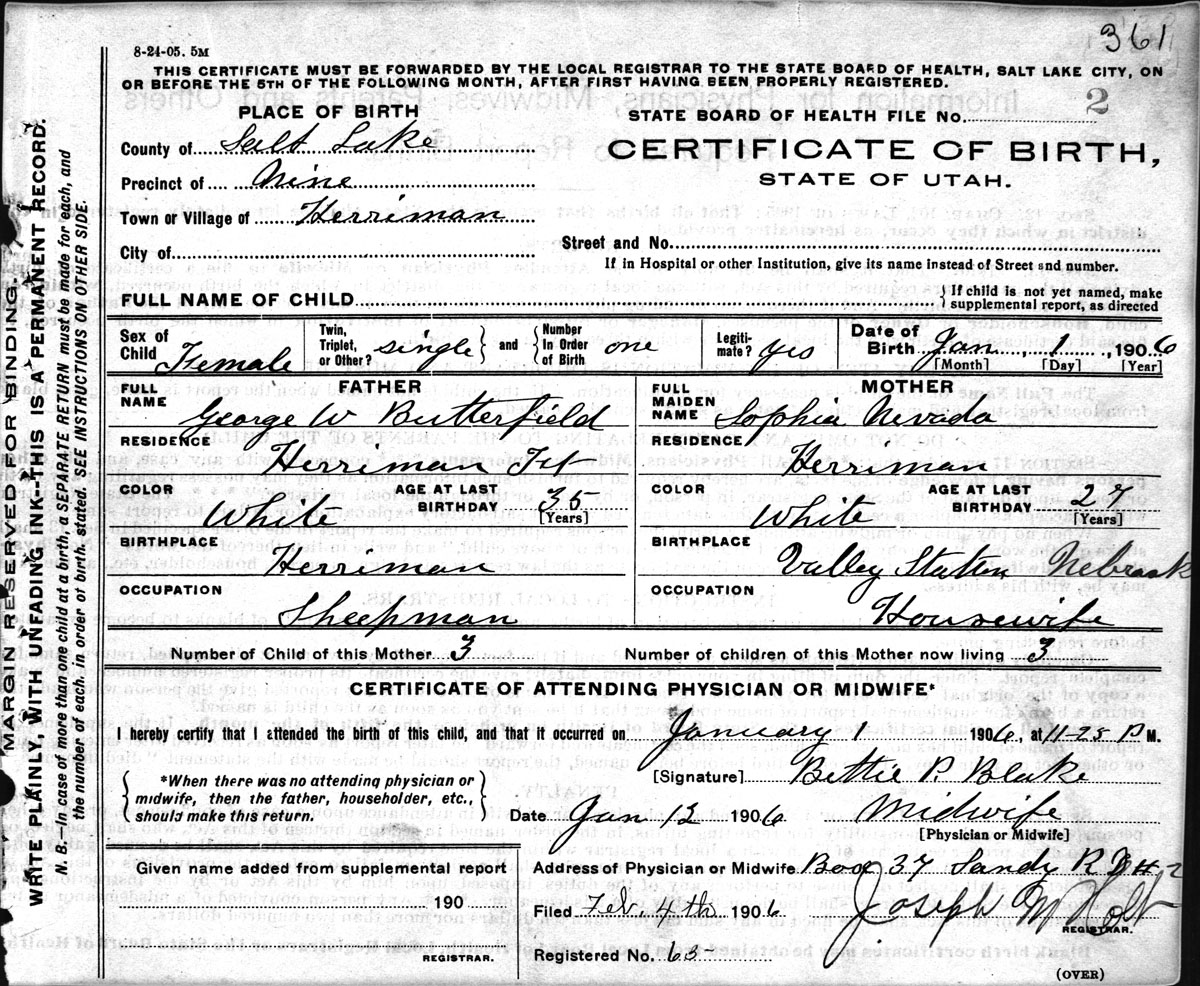 361
8-24-05. 5M
THIS CERTIFICATE MUST BE FORWARDED BY THE LOCAL REGISTRAR TO THE STATE BOARD OF HEALTH, SALT LAKE CITY, ON
OR BEFORE THE 5TH OF THE FOLLOWING MONTH, AFTER FIRST HAVING BEEN PROPERLY REGISTERED.
PLACE OF BIRTH
STATE BOARD OF HEALTH FILE No. 2
County of Salt Lake
CERTIFICATE OF BIRTH,
Precinct of Nine
STATE OF UTAH.
Town or Village of Herriman
City of
Street and No.
If in Hospital or other Institution, give its name instead of Street and number.
FULL NAME OF CHILD
{ If child is not yet named, make
supplemental report, as directed
Sex of Child Female
Twin, Triplet, or Other? single } and { Number In Order of Birth one
Legitimate? yes
Date of Birth Jan, 1, 1906
[Month] [Day] [Year]
FATHER
FULL NAME George W Butterfield
RESIDENCE
Herriman
COLOR White
AGE AT LAST BIRTHDAY 35
[Years]
BIRTHPLACE
Herriman
OCCUPATION
Sheepman
MOTHER
FULL MAIDEN NAME Sophia Nevada
RESIDENCE
Herriman
COLOR White
AGE AT LAST BIRTHDAY 27
[Years]
BIRTHPLACE
Valley Station Nebrask
OCCUPATION
Housewife
Number of Child of this Mother 3 Number of children of this Mother now living 3
CERTIFICATE OF ATTENDING PHYSICIAN OR MIDWIFE*
I hereby certify that I attended the birth of this child, and that it occurred on January 1 1906, at 11-25 P M.
{ *When there was no attending physician or
midwife, then the father, householder, etc.,
should make this return. }
[Signature] Bettie P. Blake
Date Jan 13 1906 Midwife
[Physician or Midwife]
Given name added from supplemental report
190
REGISTRAR.
Address of Physician or Midwife Box 37 Sandy
Filed Feb. 4th 1906 Joseph M Holt
REGISTRAR.
Registered No. 63
(OVER)
MARGIN RESERVED FOR BINDING
WRITE PLAINLY, WITH UNFADING INK--THIS IS A PERMANENT RECORD.
N. B.--In case of more than one child at a birth, a SEPARATE RETURN must be made for each, and
the number of each, in order of birth, stated. SEE INSTRUCTIONS ON OTHER SIDE.